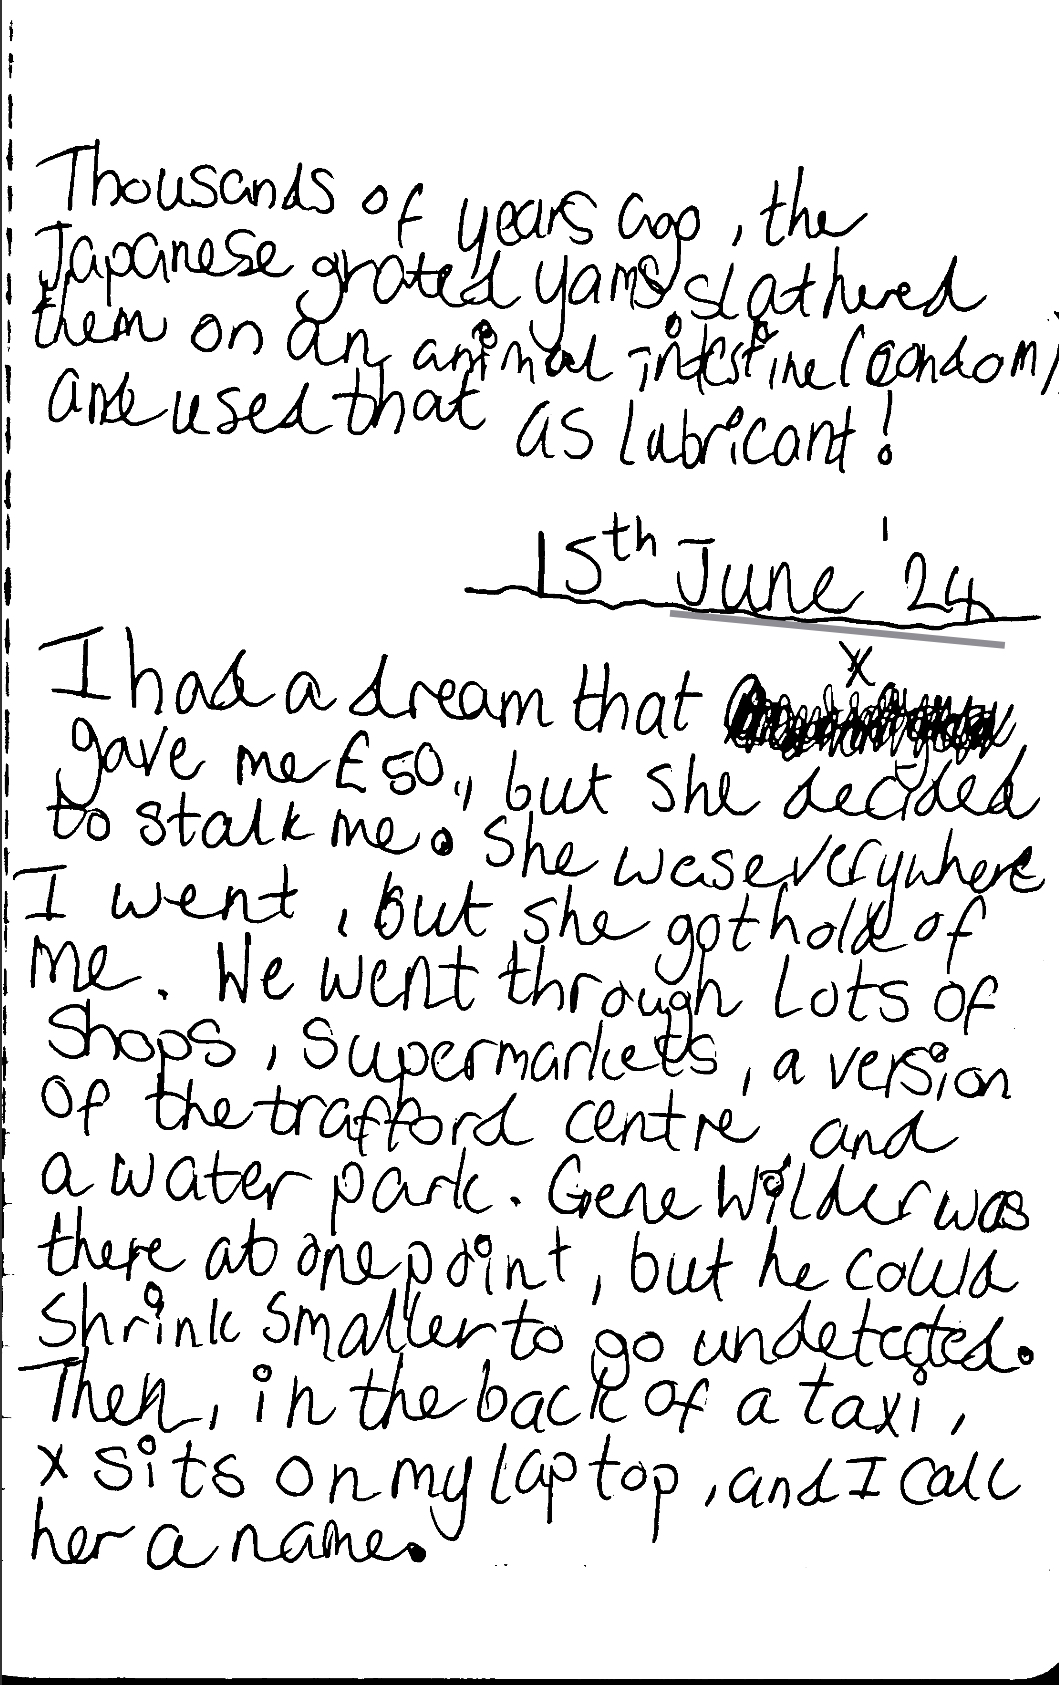 Thousands of years ago, the
Japanese grated yams, slathered
them on an animal intestine (condom)
and used that as lubricant!
15th June '24
I had a dream that x
gave me £50, but she decided
to stalk me. She was everywhere
I went, but she got hold of
me. We went through lots of
shops, supermarkets, a version
of the trafford centre, and
a water park. Gene Wilder was
there at one point, but he could
shrink smaller to go undetected.
Then, in the back of a taxi,
x sits on my laptop, and I call
her a name.